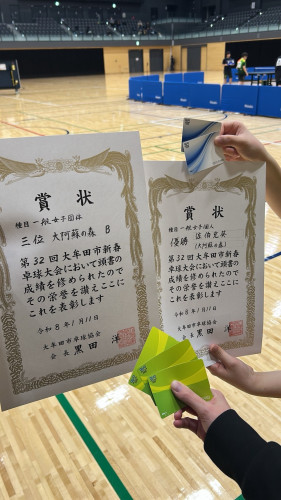 賞状
種目 一般女子団体
三位 大阿蘇の森 B
第32回大牟田市新春
卓球大会において頭書の
成績を修められたので
その栄誉を讃えここに
これを表彰します
令和8年1月11日
大牟田市卓球協会
会長 黒田 洋
賞状
種目 一般女子個人
優勝
(大阿蘇の森)
第32回大牟田市新春
卓球大会において頭書の
成績を修められたので
その栄誉を讃えここに
これを表彰します
令和8年1月11日
大牟田市卓球協会
会長 黒田 洋